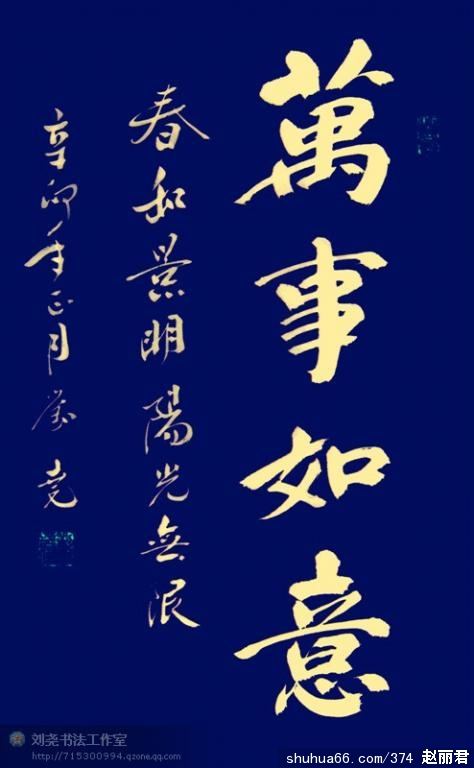 萬事如意
春和景明陽光無限
辛卯年正月劉堯
刘尧书法工作室
http://715300994.qzone.qq.com
shuhua66.com/374 赵丽君